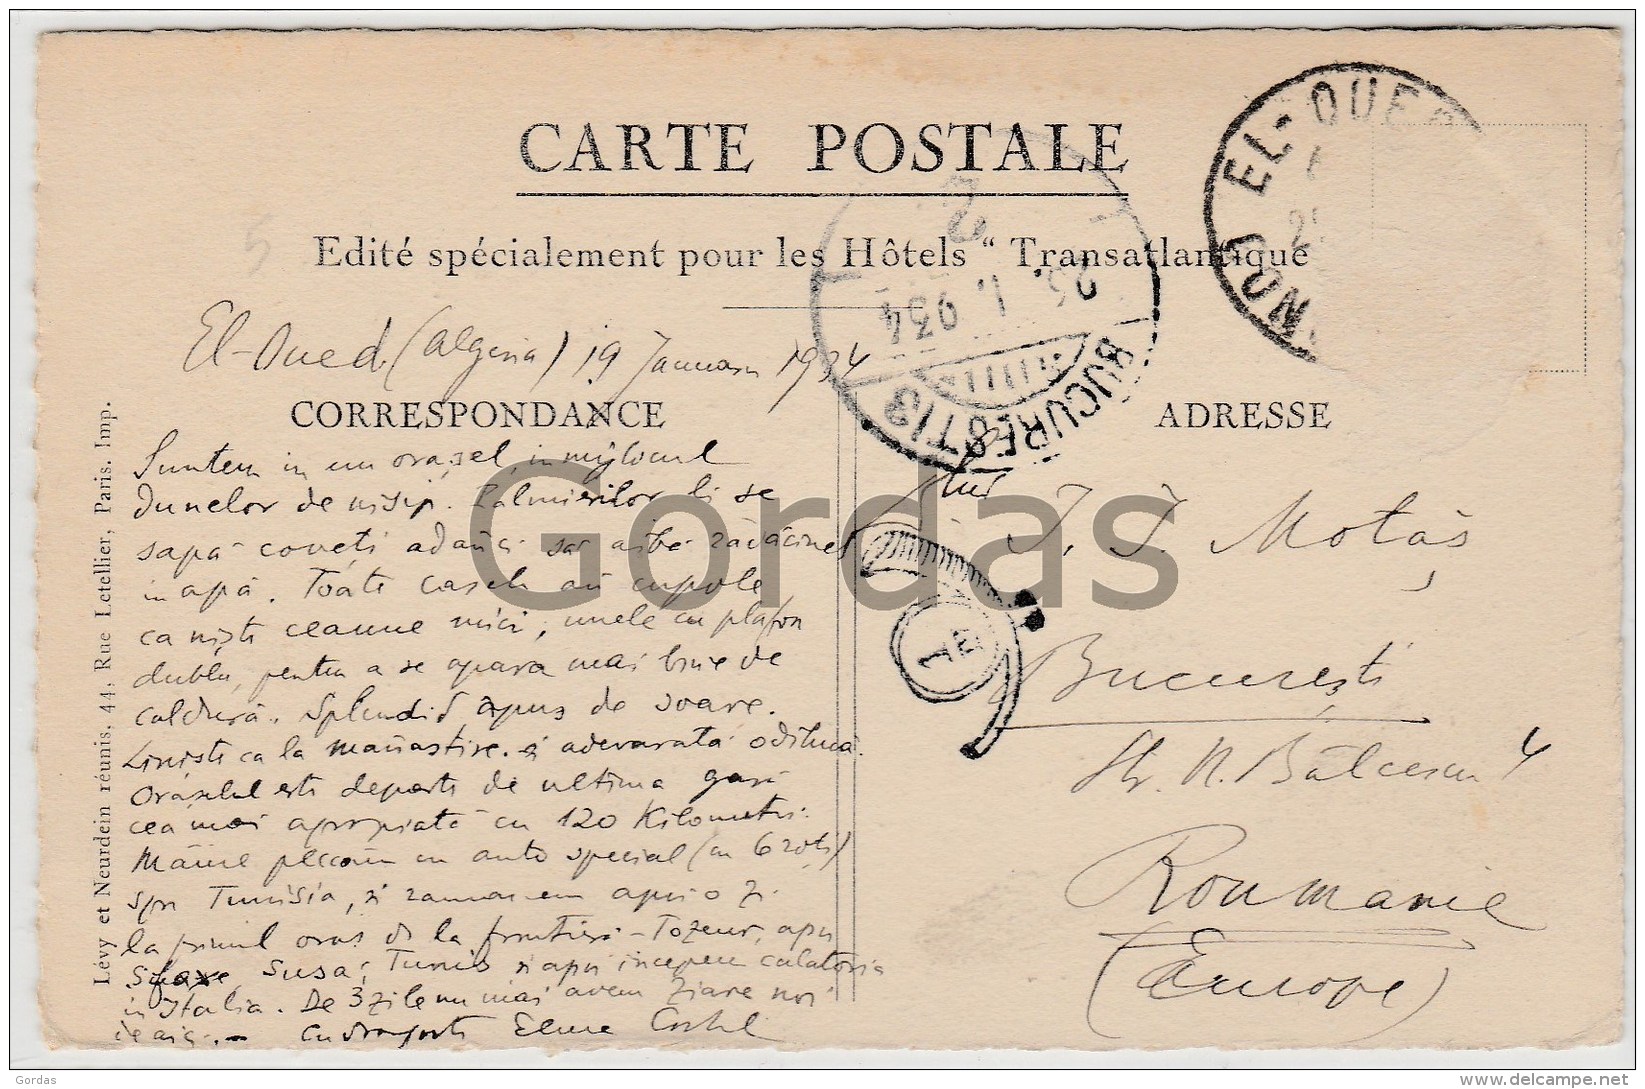 CARTE POSTALE
Edité spécialement pour les Hôtels “ Transatlantique
EL-OUED
CONS
2
25. 1. 934
BUCUREȘTI
El-Oued (Algeria) 19 Januarie 1934
CORRESPONDANCE
ADRESSE
Suntem in un orășel, in mijlocul
dunelor de nisip. Palmierilor li se
sapă coveți adânci să aibă rădăcinele
in apă. Toate casele au cupole
ca niște ceaune mici, unele cu plafon
dublu, pentru a se apăra mai bine de
căldură. Splendid apus de soare.
Liniște ca la mânăstire și adevărată odihnă.
Orășelul este departe de ultima gară
cea mai apropiată cu 120 Kilometri.
Mâine plecăm cu auto special (cu 6 roți)
spre Tunisia, și rămânem apoi o zi
la primul oraș de la frontieră - Tozeur, apoi
Sfax, Susa, Tunis și apoi incepem calatoria
in Italia. De 3 zile nu mai avem ziare noi
de aici. - Cu dragoste Costel
J. J. Motaș
București
Str. N. Bălcescu 4
Roumanie
(Europe)
Lévy et Neurdein réunis, 44, Rue Letellier, Paris. Imp.
1
Gordas
Gordas
delcampe.net